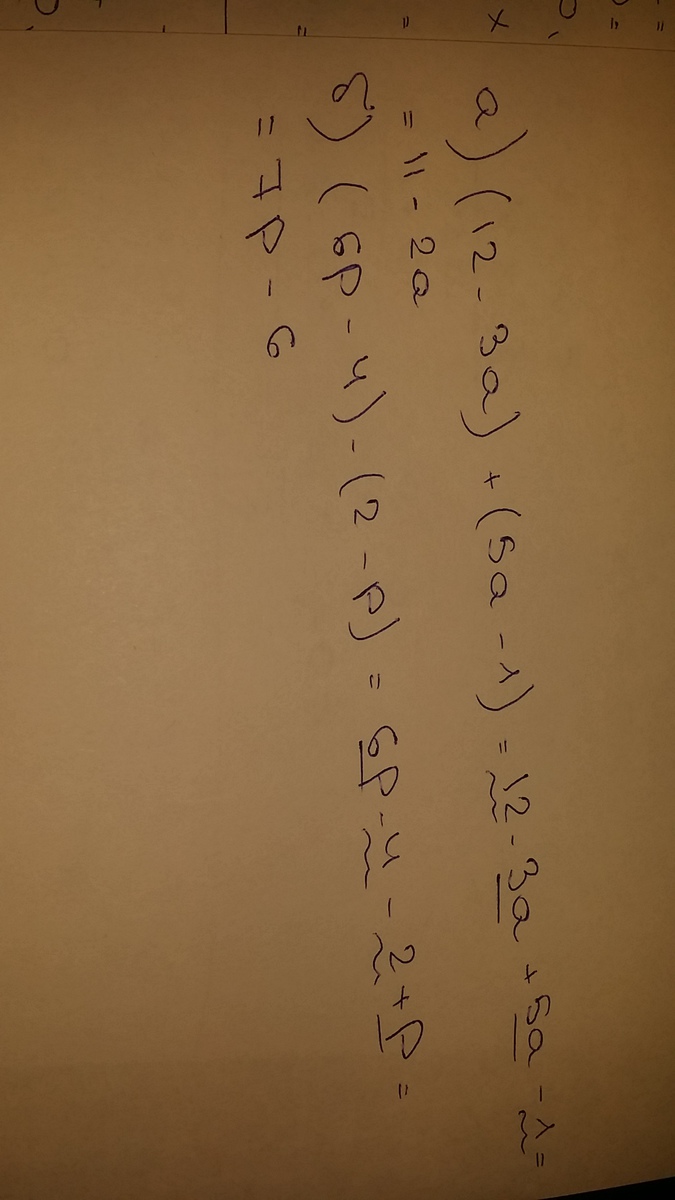 а) (12 - 3а) + (5а - 1) = 12 - 3а + 5а - 1 =
= 11 - 2а
б) (6p - 4) - (2 - p) = 6p - 4 - 2 + p =
= 7p - 6